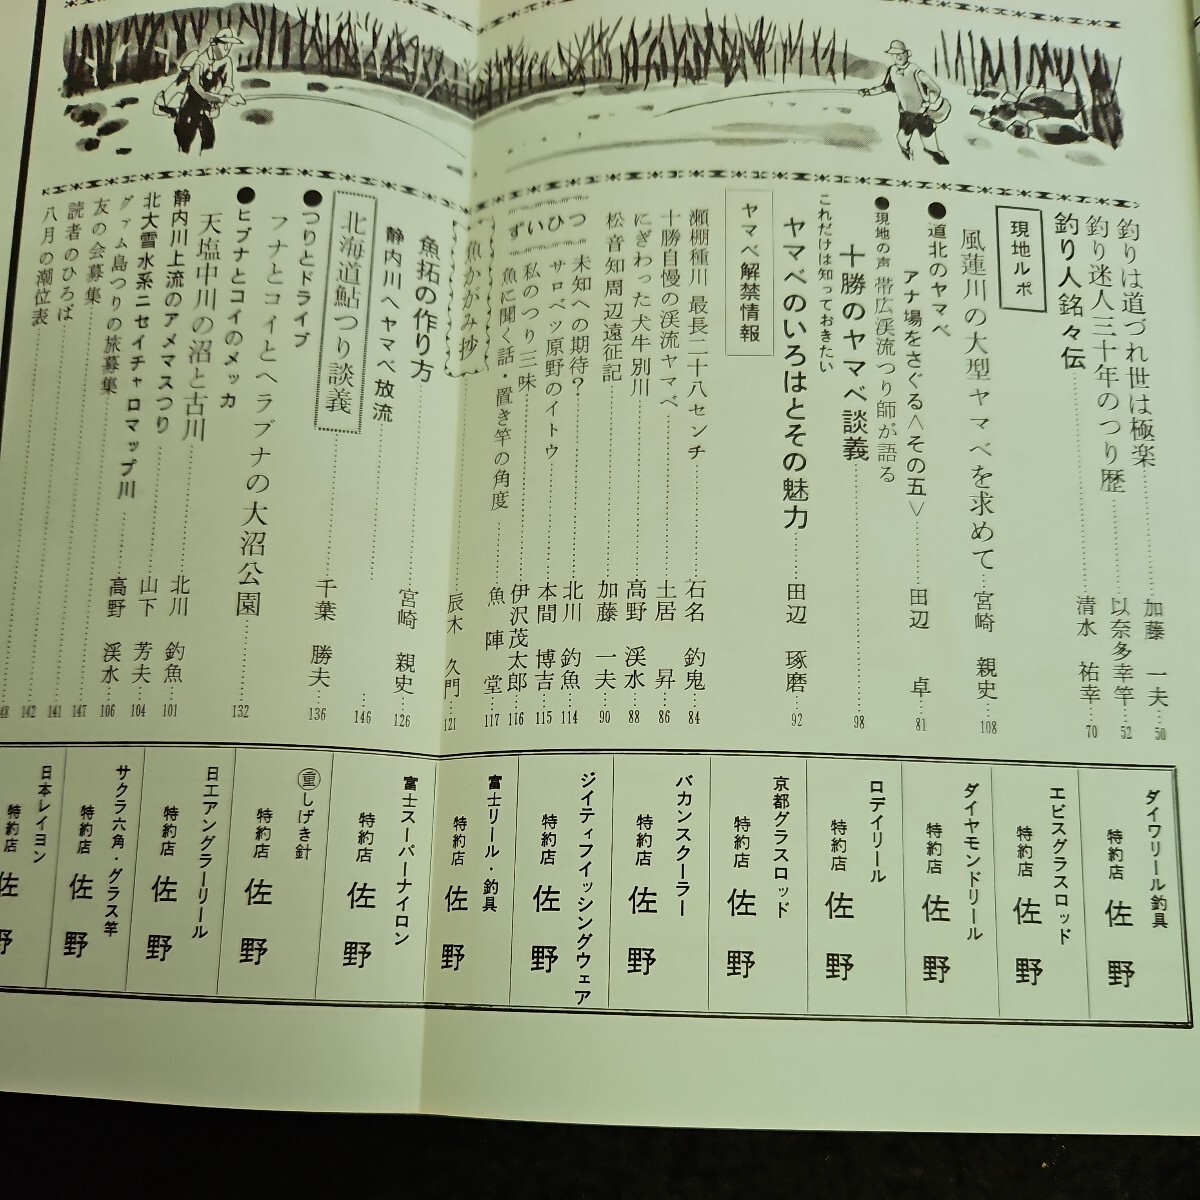 釣りは道づれ世は極楽………加藤 一夫…50
釣り迷人三十年のつり歴………以奈多幸竿…52
釣り人銘々伝………清水 祐幸…70
現地ルポ
風蓮川の大型ヤマベを求めて…宮崎 親史…108
●道北のヤマベ
アナ場をさぐる＜その五＞………田辺 卓…81
●現地の声 帯広渓流つり師が語る
十勝のヤマベ談義………98
これだけは知っておきたい
ヤマベのいろはとその魅力………田辺 琢磨…92
ヤマベ解禁情報
瀬棚種川 最長二十八センチ………石名 釣鬼…84
十勝自慢の渓流ヤマベ………土居 昇…86
にぎわった犬牛別川………高野 渓水…88
松音知周辺遠征記………加藤 一夫…90
つりずいひつ
未知への期待？………北川 釣魚…114
サロベツ原野のイトウ………本間 博吉…115
私のつり三昧………伊沢茂太郎…116
魚に聞く話・置き竿の角度………魚 陣 堂…117
魚かがみ抄………辰木 久門…121
魚拓の作り方………宮崎 親史…126
静内川へヤマベ放流………146
北海道鮎つり談義………千葉 勝夫…136
●つりとドライブ
フナとコイとヘラブナの大沼公園………132
●ヒブナとコイのメッカ
天塩中川の沼と古川………北川 釣魚…101
静内川上流のアメマスつり………山下 芳夫…104
北大雪水系ニセイチャロマップ川………高野 渓水…106
グァム島つりの旅募集………147
友の会募集………141
読者のひろば………142
八月の潮位表………148
ダイワリール釣具
特約店 佐野
エビスグラスロッド
特約店 佐野
ダイヤモンドリール
特約店 佐野
ロデイリール
特約店 佐野
京都グラスロッド
特約店 佐野
バカンスクーラー
特約店 佐野
ジイティフイッシングウェア
特約店 佐野
富士リール・釣具
特約店 佐野
富士スーパーナイロン
特約店 佐野
㊥しげき針
特約店 佐野
日工アングラーリール
特約店 佐野
サクラ六角・グラス竿
特約店 佐野
日本レイヨン
特約店 佐野